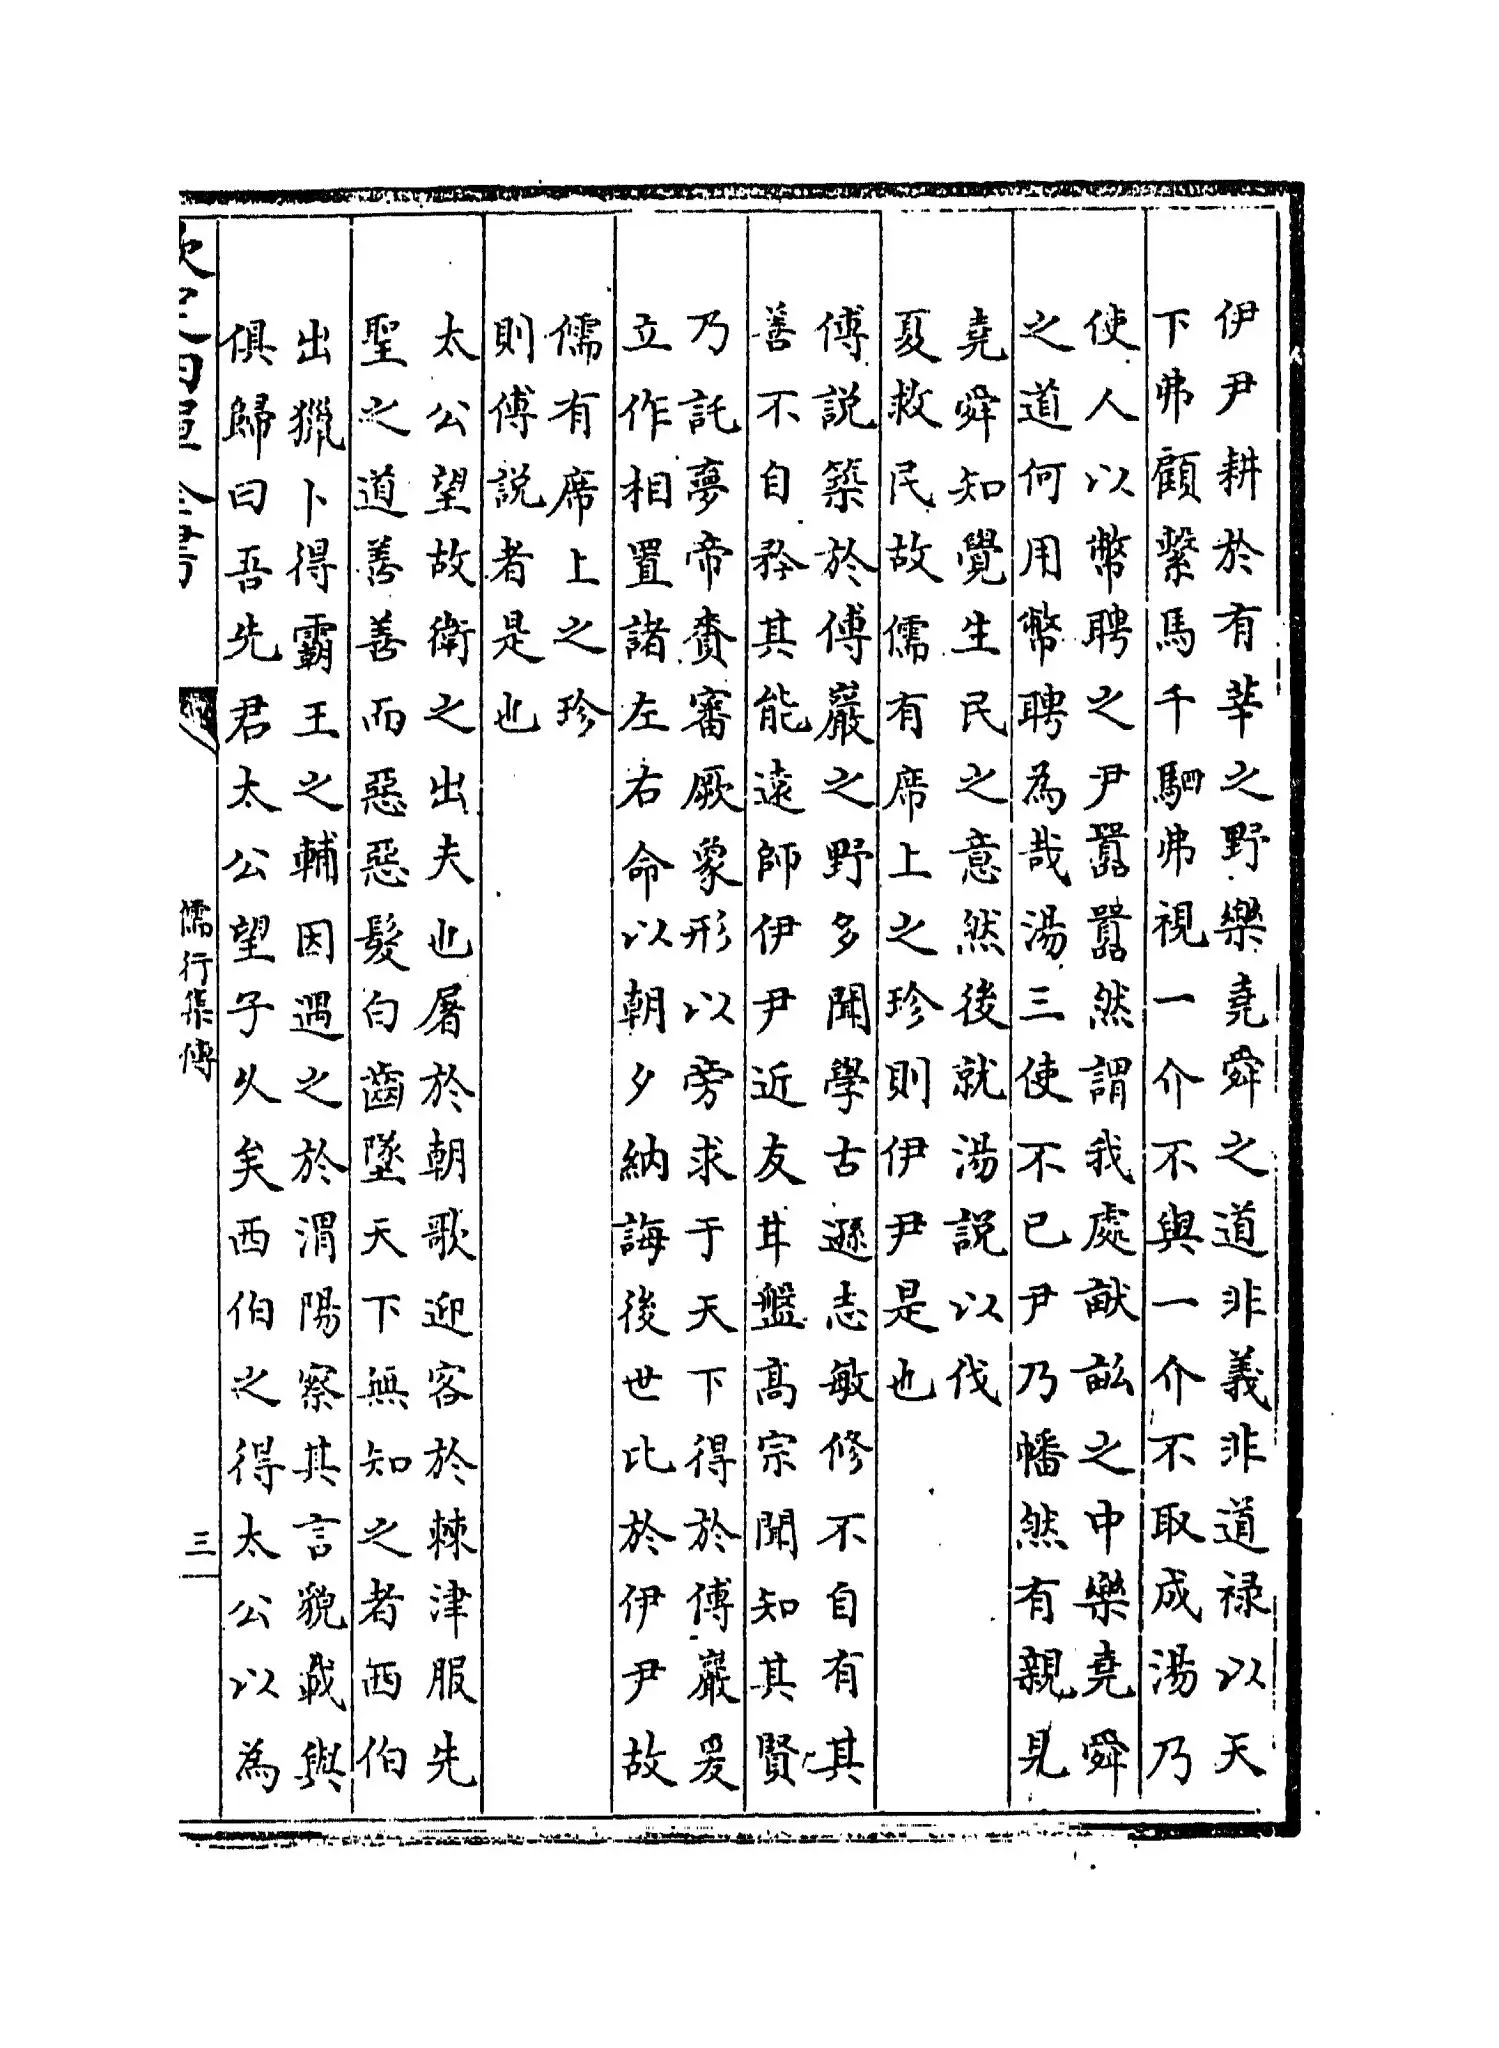 伊尹耕於有莘之野樂堯舜之道非義非道禄以天
下弗顧繫馬千駟弗視一介不與一介不取成湯乃
使人以幣聘之尹嚣嚣然謂我處畎畆之中樂堯舜
之道何用幣聘為哉湯三使不已尹乃幡然有親見
堯舜知覺生民之意然後就湯説以伐
夏救民故儒有席上之珍則伊尹是也
傅説築於傅巖之野多聞學古遜志敏修不自有其
善不自矜其能遠師伊尹近友甘盤髙宗聞知其賢
乃託夢帝賚審厥象形以旁求于天下得於傅巖爰
立作相置諸左右命以朝夕納誨後世比於伊尹故
儒有席上之珍
則傅説者是也
太公望故衛之出夫也屠於朝歌迎客於棘津服先
聖之道善善而惡惡髮白齒墜天下無知之者西伯
出獵卜得霸王之輔因遇之於渭陽察其言貌載與
俱歸曰吾先君太公望子乆矣西伯之得太公以為
欽定四庫全書
儒行集傳
三